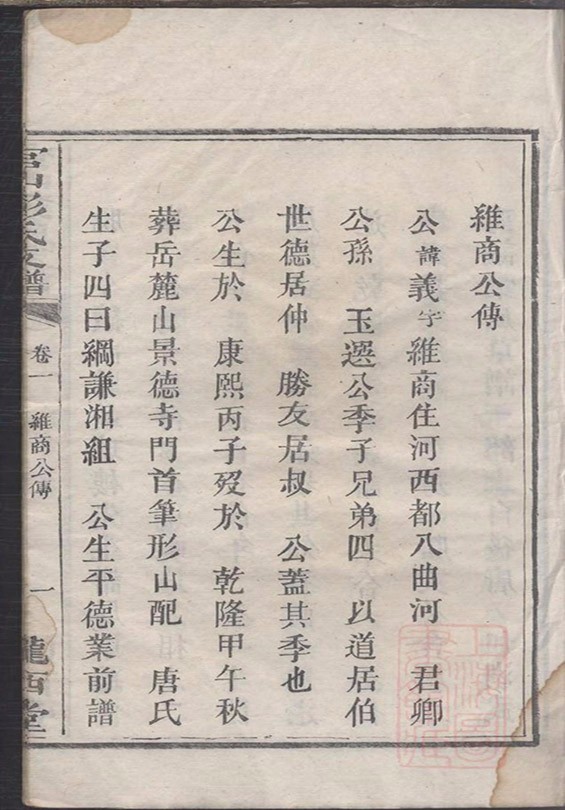 維商公傳
公諱義字維商住河西都八曲河 君卿
公孫 玉選公季子兄弟四 以道居伯
世德居仲 勝友居叔 公蓋其季也
公生於 康熙丙子歿於 乾隆甲午秋
葬岳麓山景德寺門首筆形山配 唐氏
生子四曰綱謙湘組 公生平德業前譜
彭氏支譜
卷一
維商公傳
一
隴西堂